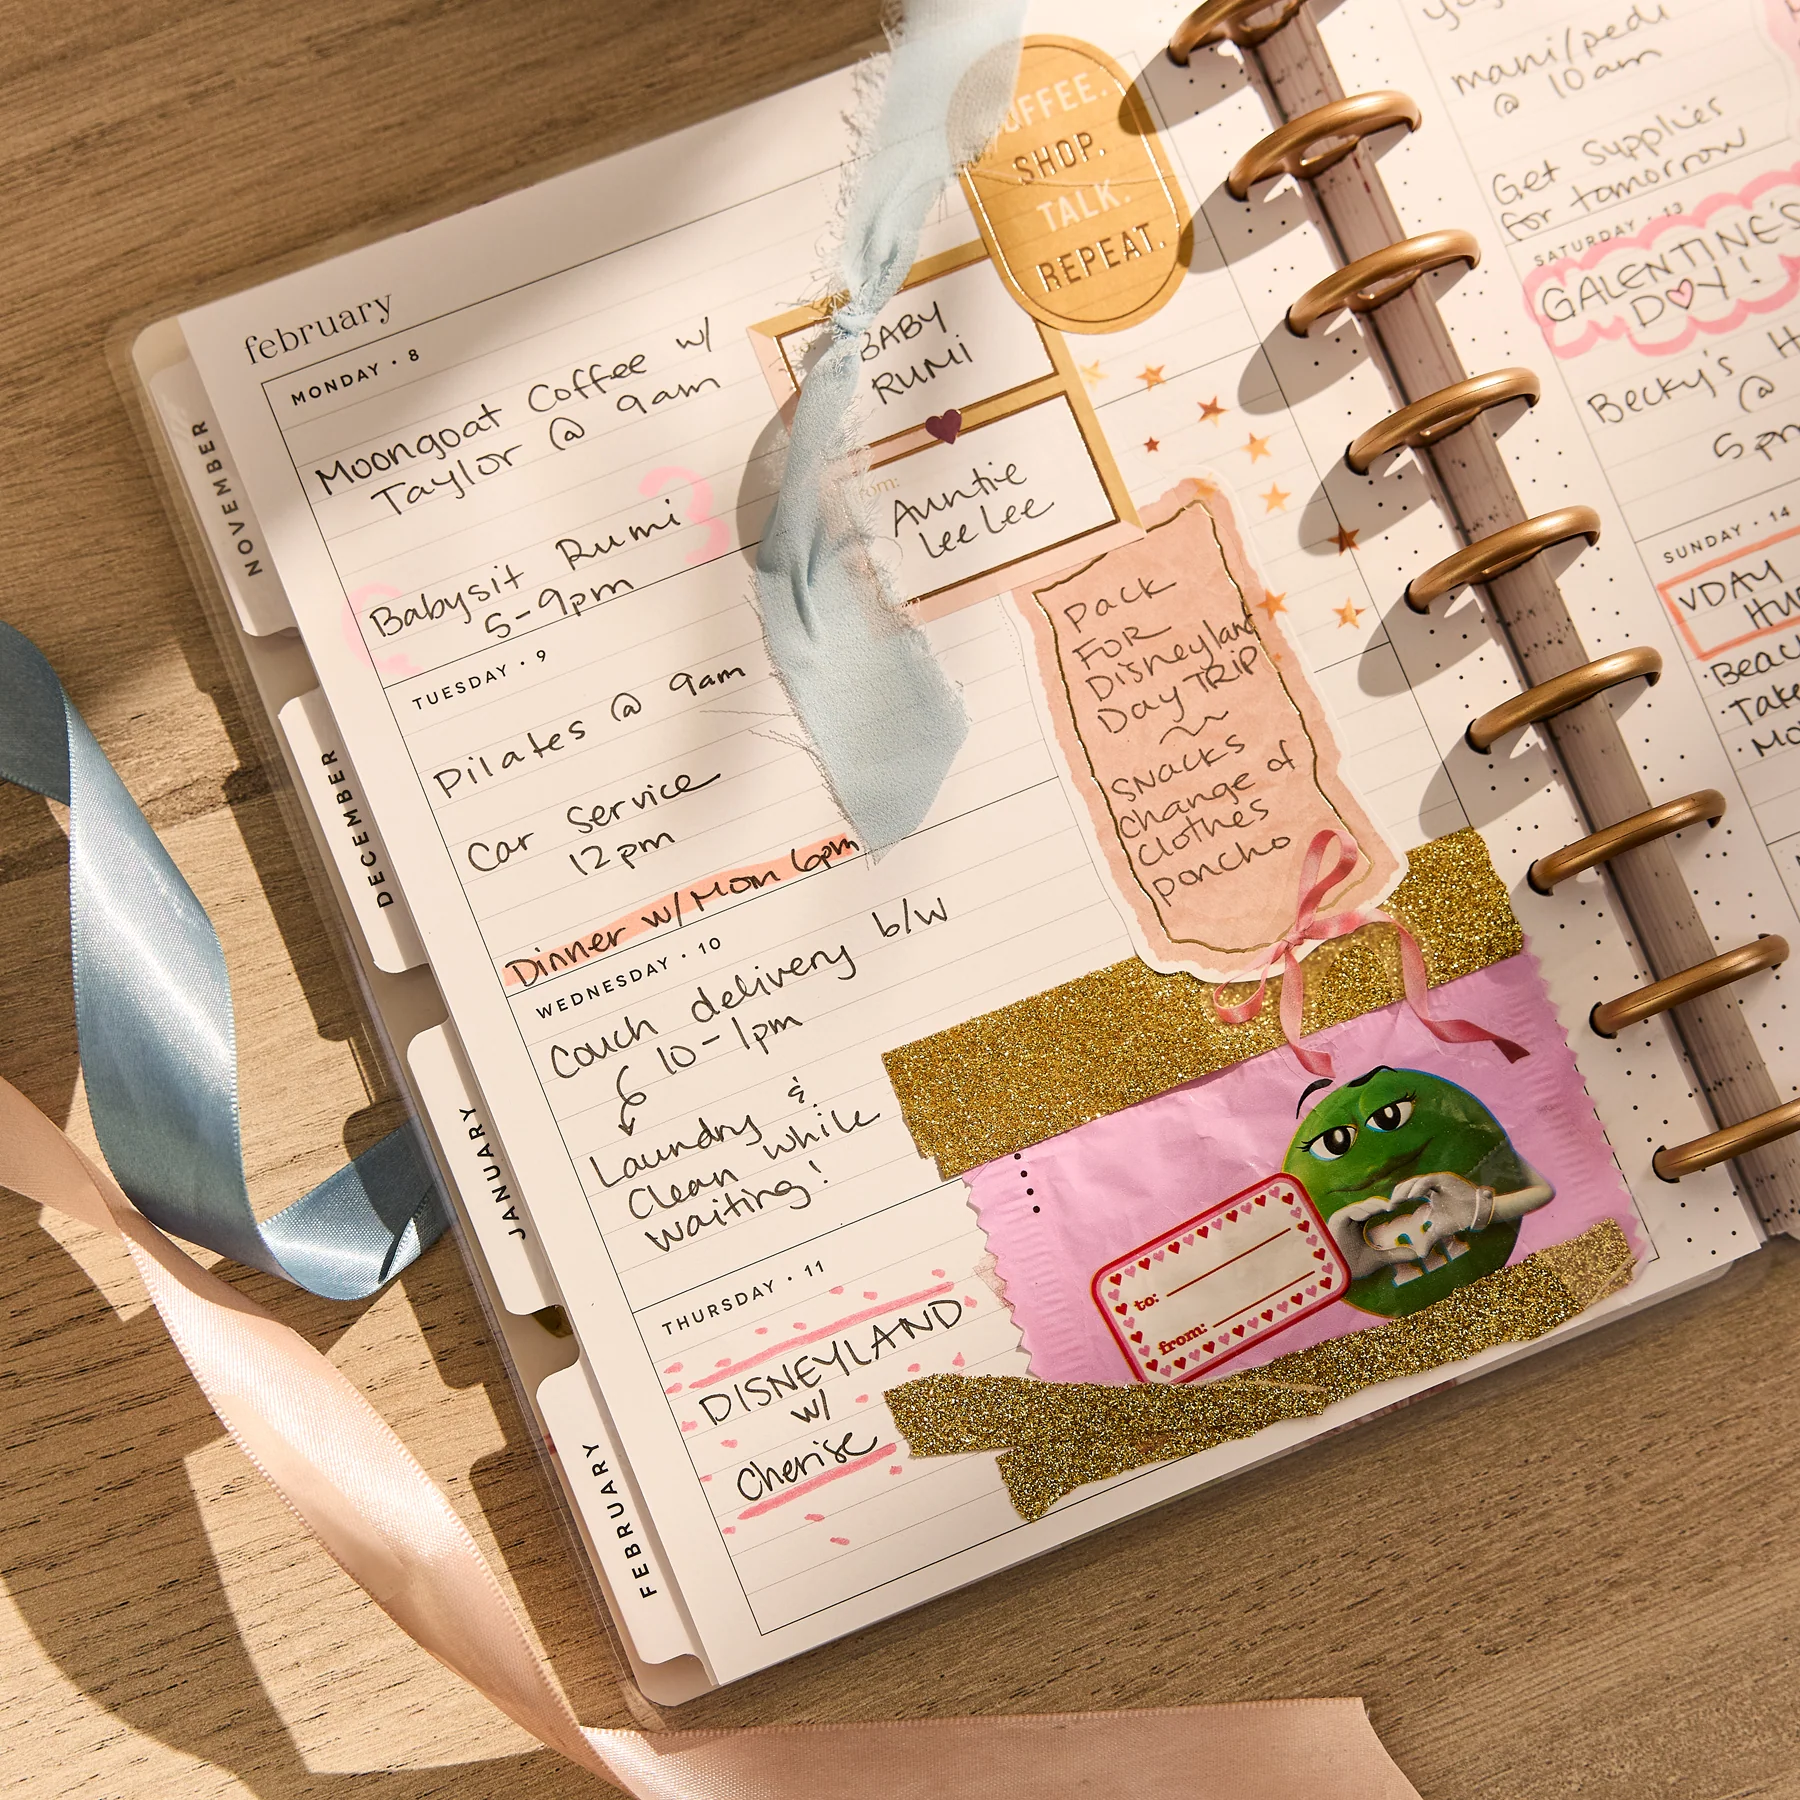 february
MONDAY • 8
Moongoat Coffee w/
Taylor @ 9am
Babysit Rumi
5-9pm
TUESDAY • 9
Pilates @ 9am
Car Service
12pm
Dinner w/Mom 6pm
WEDNESDAY • 10
Couch delivery b/w
10-1pm
Laundry &
Clean while
waiting!
THURSDAY • 11
DISNEYLAND
w/
Cherise
SHOP.
TALK.
REPEAT.
BABY
RUMI
Auntie
Lee Lee
Pack
FOR
Disneyland
Day TRIP
SNACKS
change of
clothes
poncho
to:
from:
mani/pedi
@ 10am
Get Supplies
for tomorrow
SATURDAY • 13
GALENTINE'S
DAY!
Becky's
@
5pm
SUNDAY • 14
VDAY
NOVEMBER
DECEMBER
JANUARY
FEBRUARY